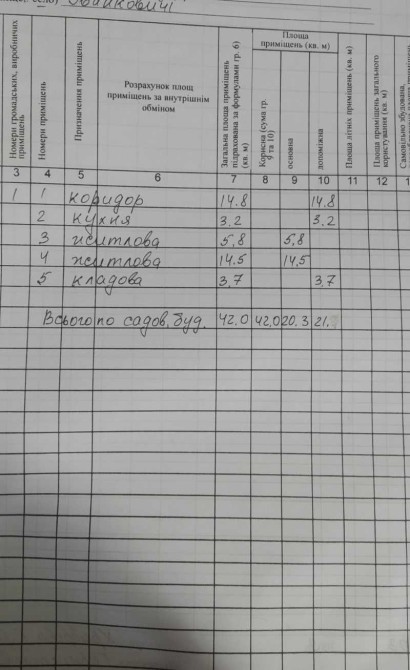 Іванковичі
Номери громадських, виробничих приміщень
Номери приміщень
Призначення приміщень
Розрахунок площ приміщень за внутрішнім обміном
Загальна площа приміщень підрахована за формулами гр. 6) (кв. м)
Площа приміщень (кв. м)
Корисна (сума гр. 9 та 10)
основна
допоміжна
Площа літніх приміщень (кв. м)
Площа приміщень загального користування (кв. м)
Самовільно збудована,
3 4 5 6 7 8 9 10 11 12 1
1 1 коридор 14.8 14.8
2 кухня 3.2 3.2
3 житлова 5,8 5,8
4 житлова 14.5 14,5
5 кладова 3,7 3,7
Всього по садов. буд. 42,0 42,0 20.3 21.